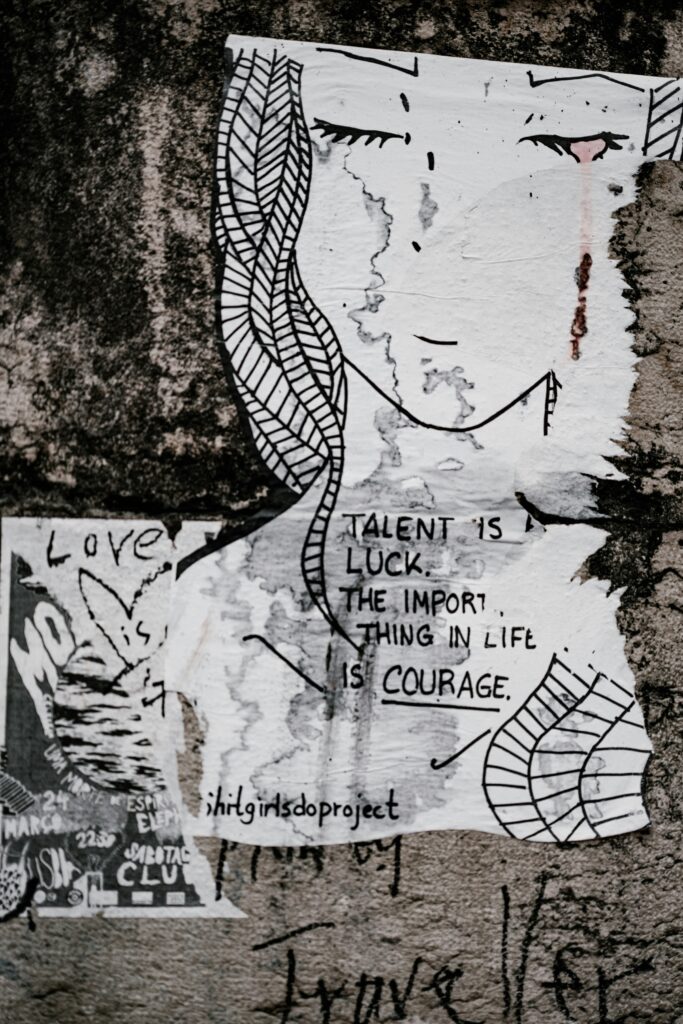 TALENT IS
LUCK.
THE IMPORT
THING IN LIFE
IS COURAGE.
shitgirlsdoproject
LOVE
is
24
MARÇO
22:30
CLU
Traveller